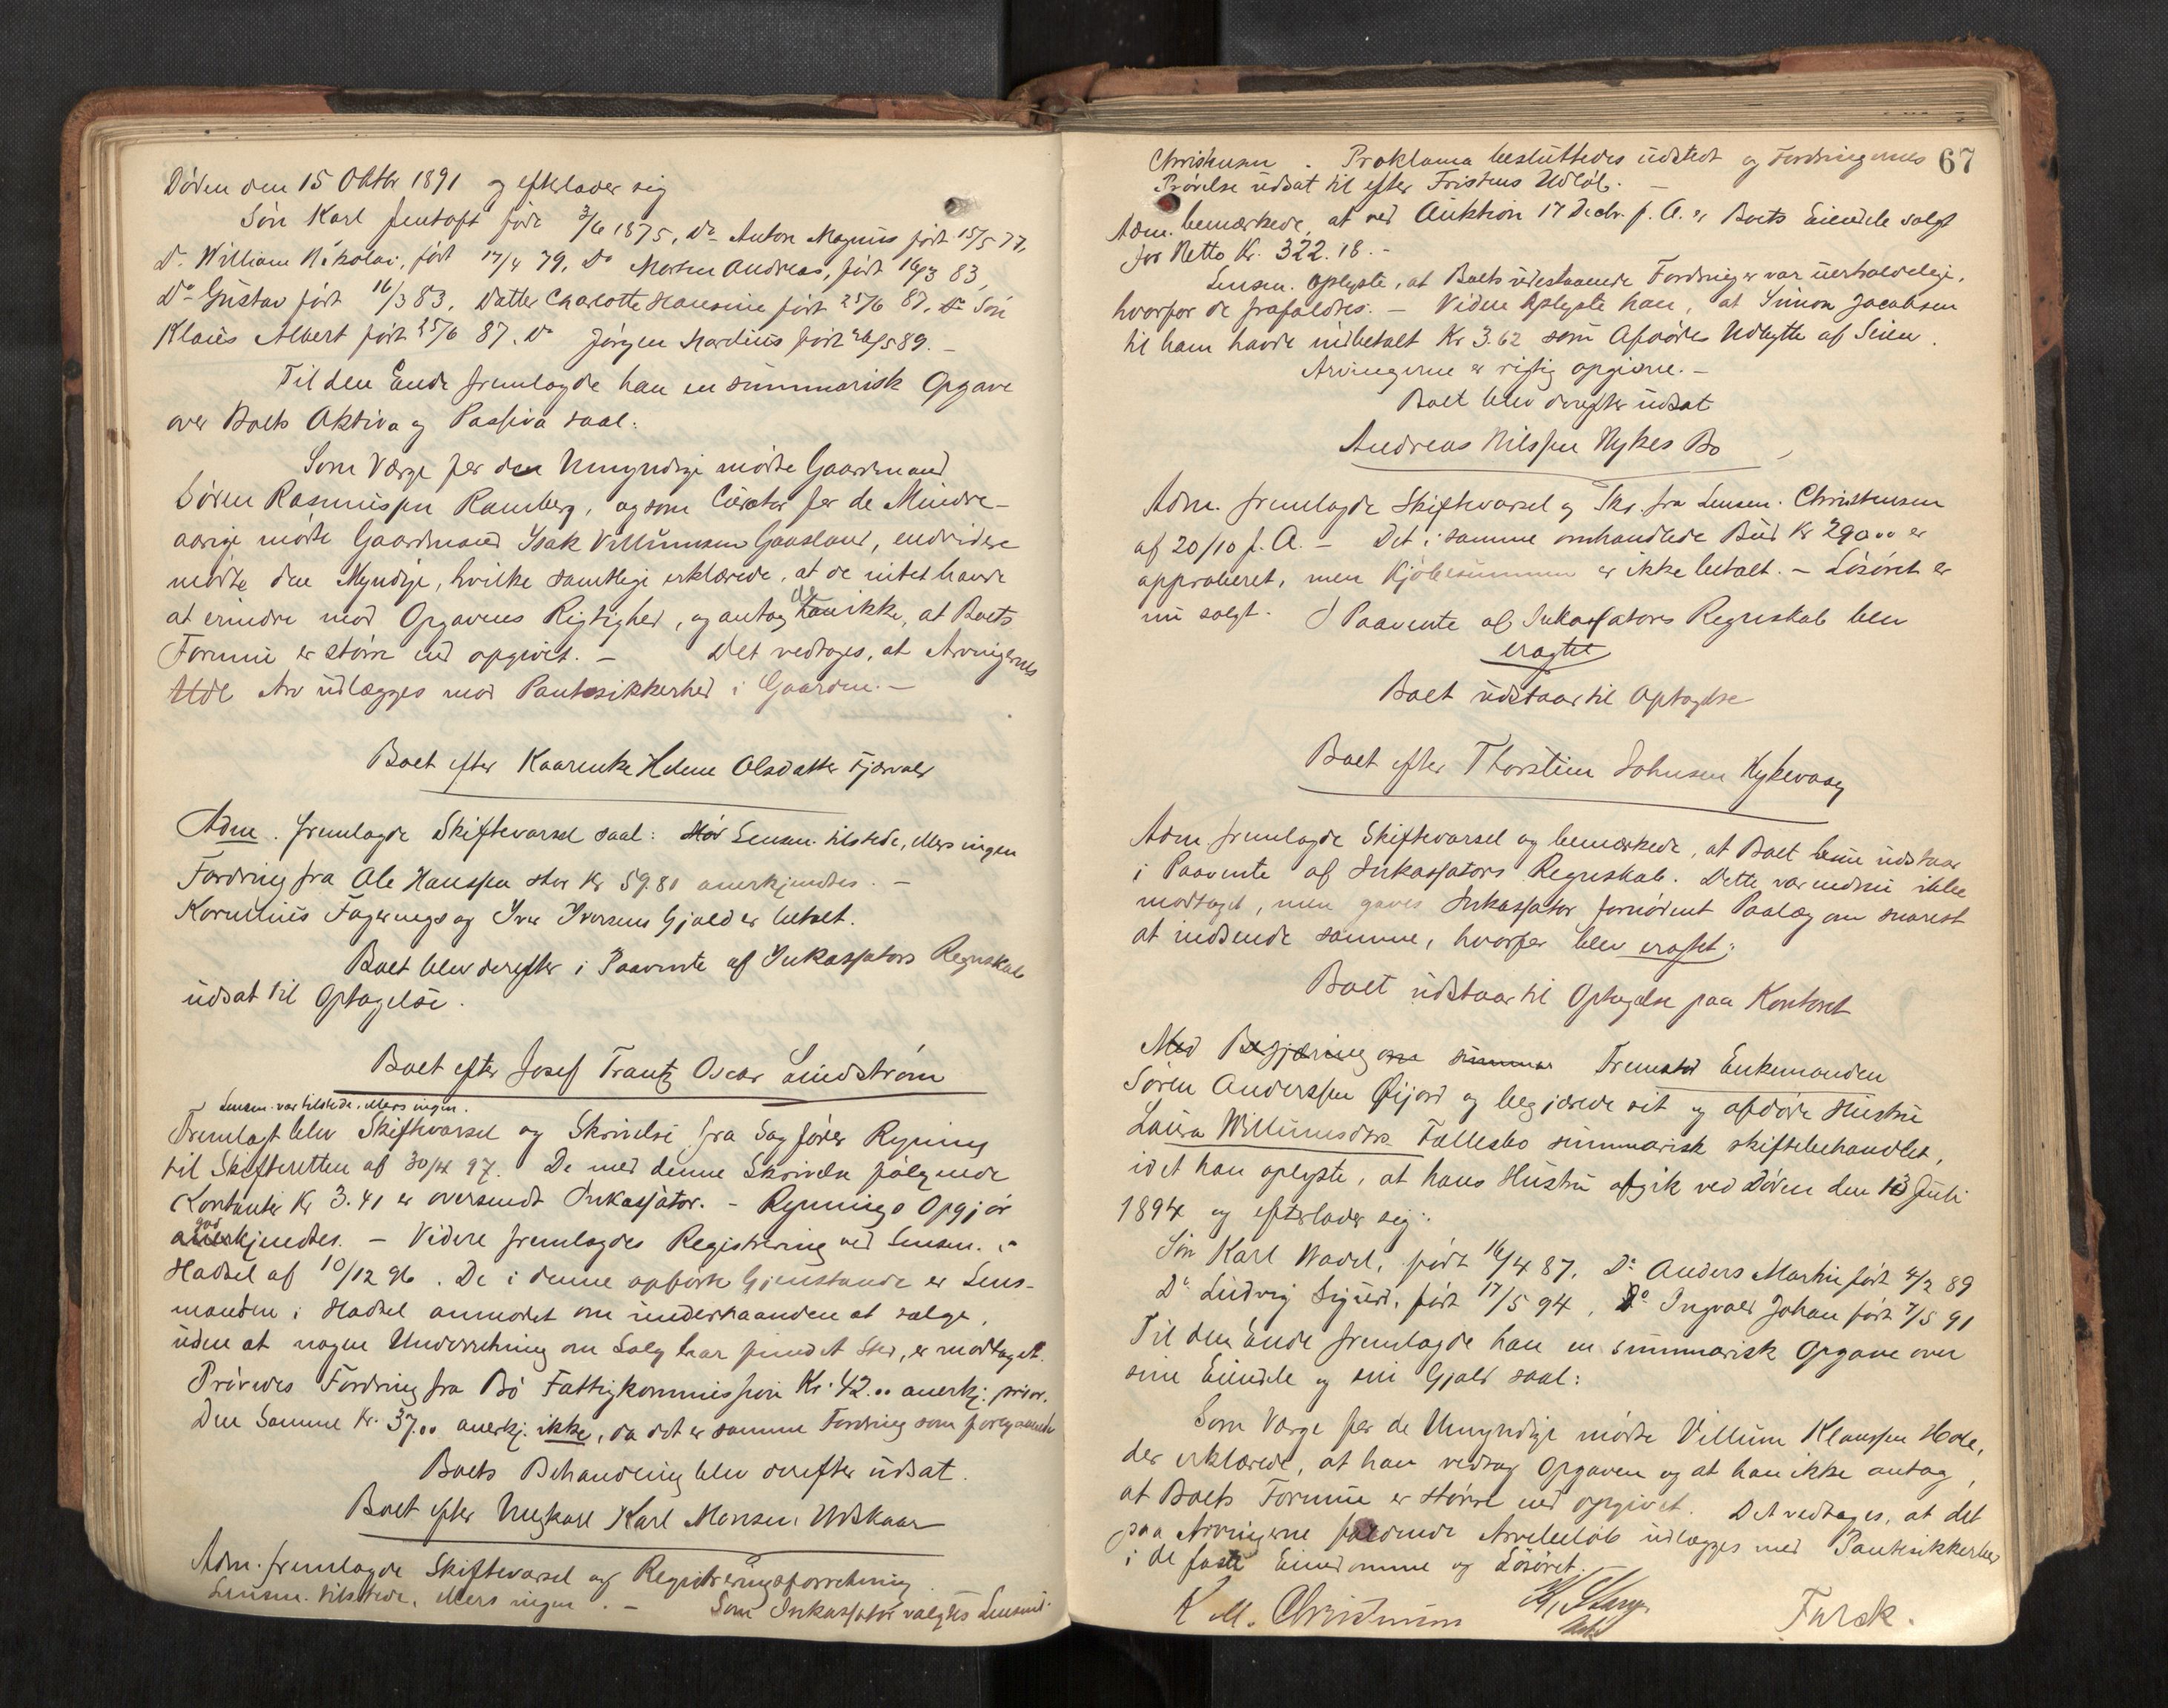 Døden den 15 Oktbr 1891 og efterlader sig
Søn Karl Jentoft føde 3/6 1875, Do Anton Magnus født 15/5 77,
Do William Nikolai, født 17/4 79, Do Morten Andreas, født 16/3 83,
Do Gustav født 16/3 83, Datter Charlotte Hansine født 25/6 87, Do Søn
Klaus Albert født 25/6 87. Do Jørgen Mardius født 26/5 89. –
Til den Ende fremlagde han en summarisk Opgave
over Boets Aktiva og Passiva saal:
Som Værge for den Umyndige mødte Gaardmand
Søren Rasmussen Ramberg, og som Curator for de Mindre-
aarige mødte Gaardmand Isak Villumsen Gaasland, endvidere
mødte den Myndige, hvilke samtlige erklærede, at de intet havde
at erindre mod Opgavens Rigtighed, og antog de han ikke, at Boets
Formue er større end opgivet. – Det vedtoges, at Arvingernes
Udl Arv udlægges mod Pantesikkerhed i Gaarden. –
Boet efter Kaarenke Helene Olsdatter Fjærvold
Adm. fremlagde Skiftevarsel saal: Lensm. tilstede, ellers ingen
Fordring fra Ole Hanssen stor Kr 59.80 anerkjendtes. –
Kornelius Fagernæs og Iver Iversens Gjæld er betalt.
Boet blev derefter i Paavente af Inkassators Regnskab
udsat til Optagelse.
Boet efter Josef Frantz Oscar Lindstrøm
Lensm. var tilstede, ellers ingen.
Fremlagt blev Skiftevarsel og Skrivelse fra Sagfører Rynning
til Skifteretten af 30/4 97. De med denne Skrivelse følgende
Kontanter Kr 3.41 er oversendt Inkassator. – Rynnings Opgjør
god
anerkjendtes. – Videre fremlagdes Registrering ved Lensm. i
Hadsel af 10/12 96. De i denne opførte Gjenstande er Lens-
manden i Hadsel anmodet om underhaanden at sælge,
uden at nogen Underretning om Salg har fundet Sted, er modtaget.
Prøvedes Fordring fra Bø Fattigkommission Kr. 42.00 anerkj. prior.
Den Samme Kr. 37.00 anerkj. ikke, da det er samme Fordring som foregaaende
Boets Behandling blev derefter udsat.
Boet efter Ungkarl Karl Monsen Udskaar
Adm. fremlagde Skiftevarsel og Registreringsforretning.
Lensm. tilstede, ellers ingen. – Som Inkassator valgtes Lensmd.
67
Christensen. Proklama besluttedes udstedt og Fordringernes
Prøvelse udsat til efter Fristens Udløb. –
Adm. bemærkede, at ved Auktion 17 Decbr. f. A. er Boets Eiendele solgt
for Netto Kr. 322.18. –
Lensm. oplyste, at Boets udestaaende Fordringer var uerholdelige,
hvorfor de frafaldtes. – Videre oplyste han, at Simon Jacobsen
til ham havde indbetalt Kr 3.62 som Afdødes Udbytte af Seien.
Arvingerne er rigtig opgivne. –
Boet blev derefter udsat
Andreas Nilssen Nykes Bo
Adm. fremlagde Skiftevarsel og Skr. fra Lensm. Christensen
af 20/10 f. A. – Det i samme omhandlede Bud Kr 290.00 er
approberet, men Kjøbesummen er ikke betalt. – Løsøret er
nu solgt. I Paavente af Inkassators Regnskab blev
eragtet
Boet udstaar til Optagelse
Boet efter Thorstein Johnsen Nykevaag
Adm fremlagde Skiftevarsel og bemærkede, at Boet udstaar
i Paavente af Inkassators Regnskab. Dette var endnu ikke
modtaget, men gaves Inkassator fornødent Paalæg om snarest
at indsende samme, hvorfor blev eragtet:
Boet udstaar til Optagelse paa Kontoret
Med Begjæring om summar Fremstod Enkemanden
Søren Anderssen Øijord og begjærede sit og afdøde Hustru
Laura Willumsdtrs Fællesbo summarisk skiftebehandlet,
idet han oplyste, at hans Hustru afgik ved Døden den 13 Juli
1894 og efterlader sig:
Søn Karl Wadel, født 16/4 87, Do Anders Martin født 4/2 89
Do Ludvig Sigurd, født 17/5 94, Do Ingvald Johan født 7/5 91
Til den Ende fremlagde han en summarisk Opgave over
sine Eiendele og sin Gjæld saal:
Som Værge for de Umyndige mødte Villum Klaussen Hole,
der erklærede, at han vedtog Opgaven og at han ikke antog,
at Boets Formue er større end opgivet. Det vedtoges, at det
paa Arvingerne faldende Arvebeløb udlægges med Pantesikkerhed
i de faste Eiendomme og Løsøret.
K M. Christensen
Farsk.